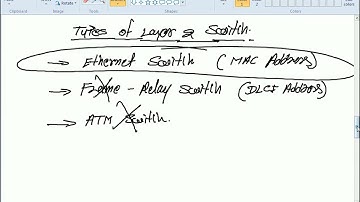 Types of Layer 2 Switch.
→ Ethernet Switch (MAC Address)
→ Frame - Relay Switch (DLCI Address)
→ ATM Switch.